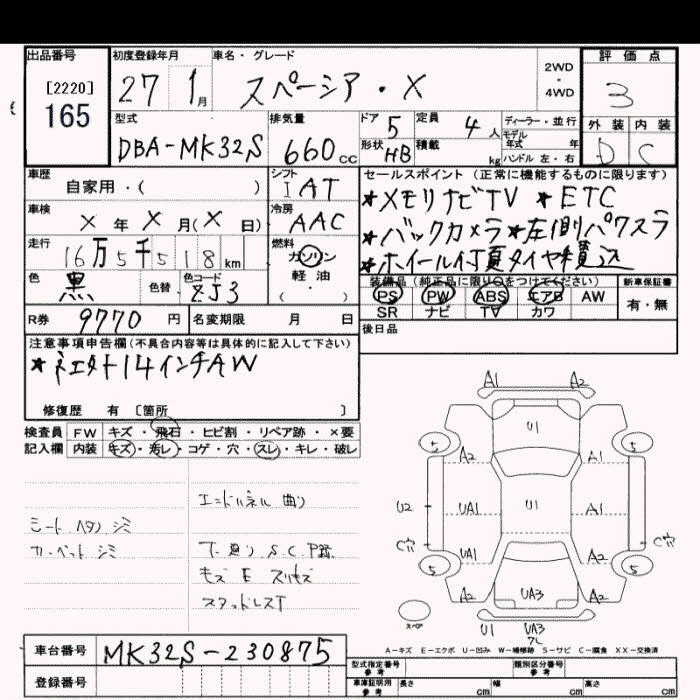 出品番号 初度登録年月 車名・グレード 評価点
[2220]
165
27 1月 スペーシア・X
2WD
・
4WD
3
型式 排気量 ドア 定員 ディーラー・並行 外装 内装
DBA-MK32S 660cc 5 4人 モデル年式 年
形状 HB 積載 kg ハンドル 左・右
D C
車歴 シフト セールスポイント(正常に機能するものに限ります)
自家用・( ) IAT ★メモリナビTV ★ETC
車検 冷房 ★バックカメラ★左側パワスラ
X年X月(X日) AAC
走行 燃料 ★ホイール付夏タイヤ積込
16万5千518km ガソリン
軽油
・( )
色 黒 色替 色コード ZJ3
装備品(純正品に限り○をつけてください) 新車保証書
PS PW ABS エアB AW 有・無
SR ナビ TV カワ
R券 9770円 名変期限 月 日 後日品
注意事項申告欄(不具合内容等は具体的に記入して下さい)
★社外14インチAW
修復歴 有 〔箇所 〕
検査員 FW キズ・飛石・ヒビ割・リペア跡・×要
記入欄 内装 キズ・汚レ・コゲ・穴・スレ・キレ・破レ
シート ヘタリ シミ
カーペット シミ
曲り
下廻り S.C.P跡
キズ E スリキズ
スタッドレスT
A1 A2
U1
5 5
A2 A1
U2 UA1 U1 A1
C穴 UA1 A1 C穴
5 5
A2 UA3 A2
スペア
U1 UA3
ワレ
A-キズ E-エクボ U-凹み W-補修跡 S-サビ C-腐食 XX-交換済
車台番号 MK32S-230875
登録番号
型式指定番号 参考 類別区分番号 参考
車庫証明用 参考 長さ cm 幅 cm 高さ cm